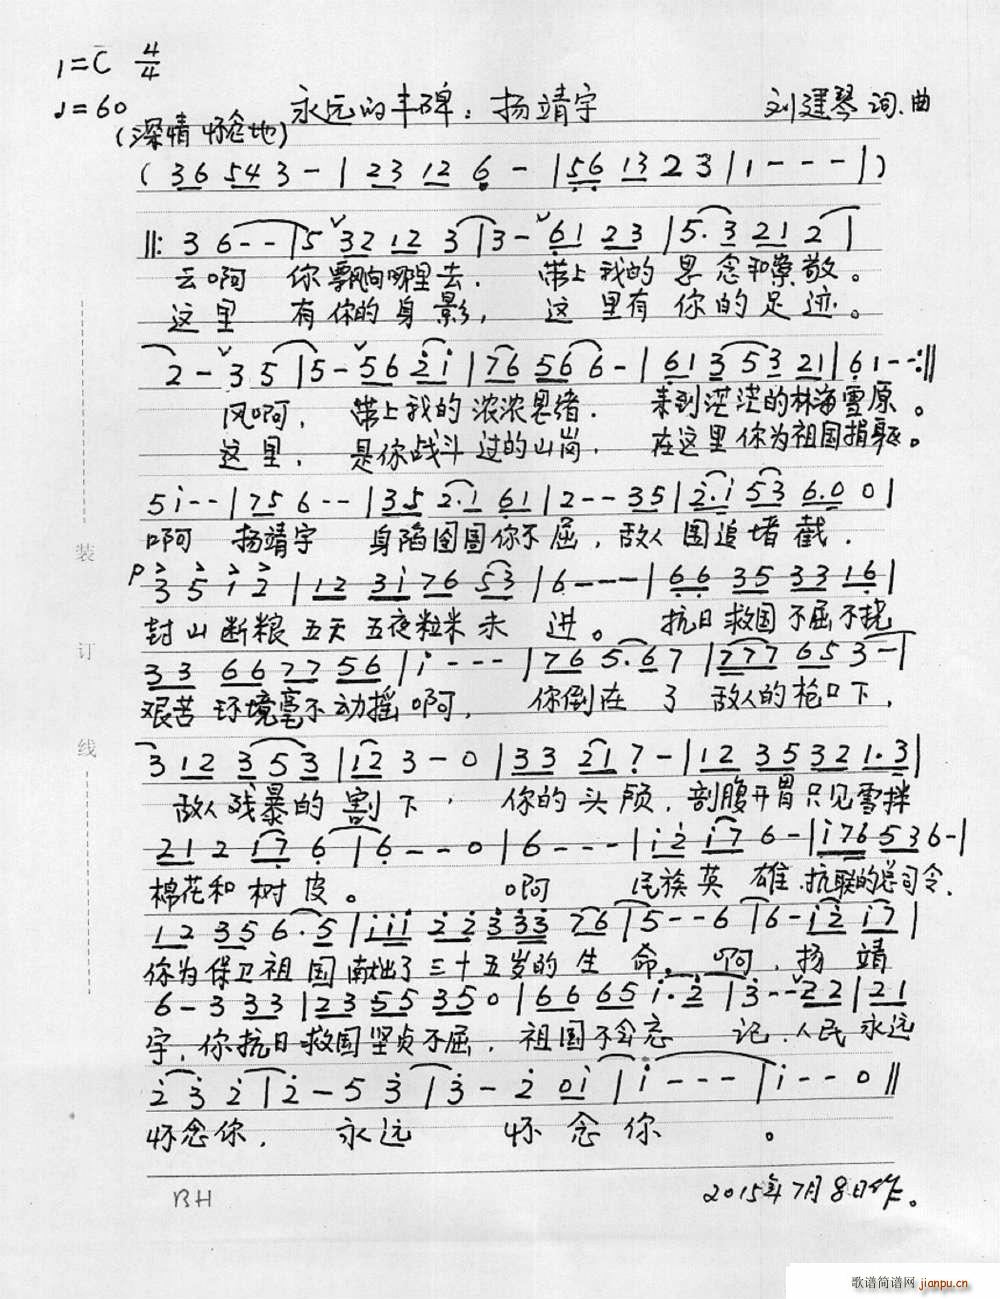 1=C 4/4
♩=60 永远的丰碑：扬靖宇 刘莲琴 词.曲
(深情 怀念地)
(36 54 3 - | 23 12 6 - | 56 13 2 3 | 1 - - - |)
‖: 3 6 - - | 5 32 12 3 | 3 - 61 23 | 5. 3 21 2 |
云啊 你飘向哪里去. 带上我的思念和崇敬。
这里 有你的身影， 这里有你的足迹。
2 - 3 5 | 5 - 56 2i | 76 56 6 - | 61 3 53 21 | 61 - - :‖
风啊， 带上我的浓浓思绪. 来到茫茫的林海雪原。
这里. 是你战斗过的山岗， 在这里你为祖国捐躯。
5 i - - | 75 6 - - | 35 2.1 61 | 2 - - 35 | 2.i 53 6.0 0 |
啊 扬靖宇 身陷囹圄你不屈，敌人围追堵截.
p 3 5 i 2 | 12 3i 76 53 | 6 - - - | 66 35 33 16 |
封山断粮 五天五夜粒米未进。 抗日救国不屈不挠
33 66 77 56 | i - - - | 76 5.6 7 | 777 65 3 - |
艰苦环境毫不动摇啊， 你倒在了敌人的枪口下，
3 12 3 5 3 | 12 3 - 0 | 33 21 7 - | 12 35 32 1.3 |
敌人残暴的割下， 你的头颅，剖腹开胃只见雪拌
21 2 i7 6 | 6 - - 0 | 6 - - - | i2 i7 6 - | i76 53 6 - |
棉花和树皮。 啊 民族英雄.抗联的总司令.
12 35 6. 5 | iii 22 333 76 | 5 - - 6 | 6 - i2 i7 |
你为保卫祖国献出了三十五岁的生命。啊，扬靖
6 - 3 33 | 23 55 35 0 | 66 65 i.2 | 3 - - 22 | 21
宇，你抗日救国坚贞不屈，祖国不会忘记.人民永远
2 3 2 | 2 - 5 3 | 3 - 2 0i | i - - - | i - - 0 ‖
怀念你， 永远 怀念你。
BH 2015年7月8日作。
装
订
线
歌谱简谱网 jianpu.cn